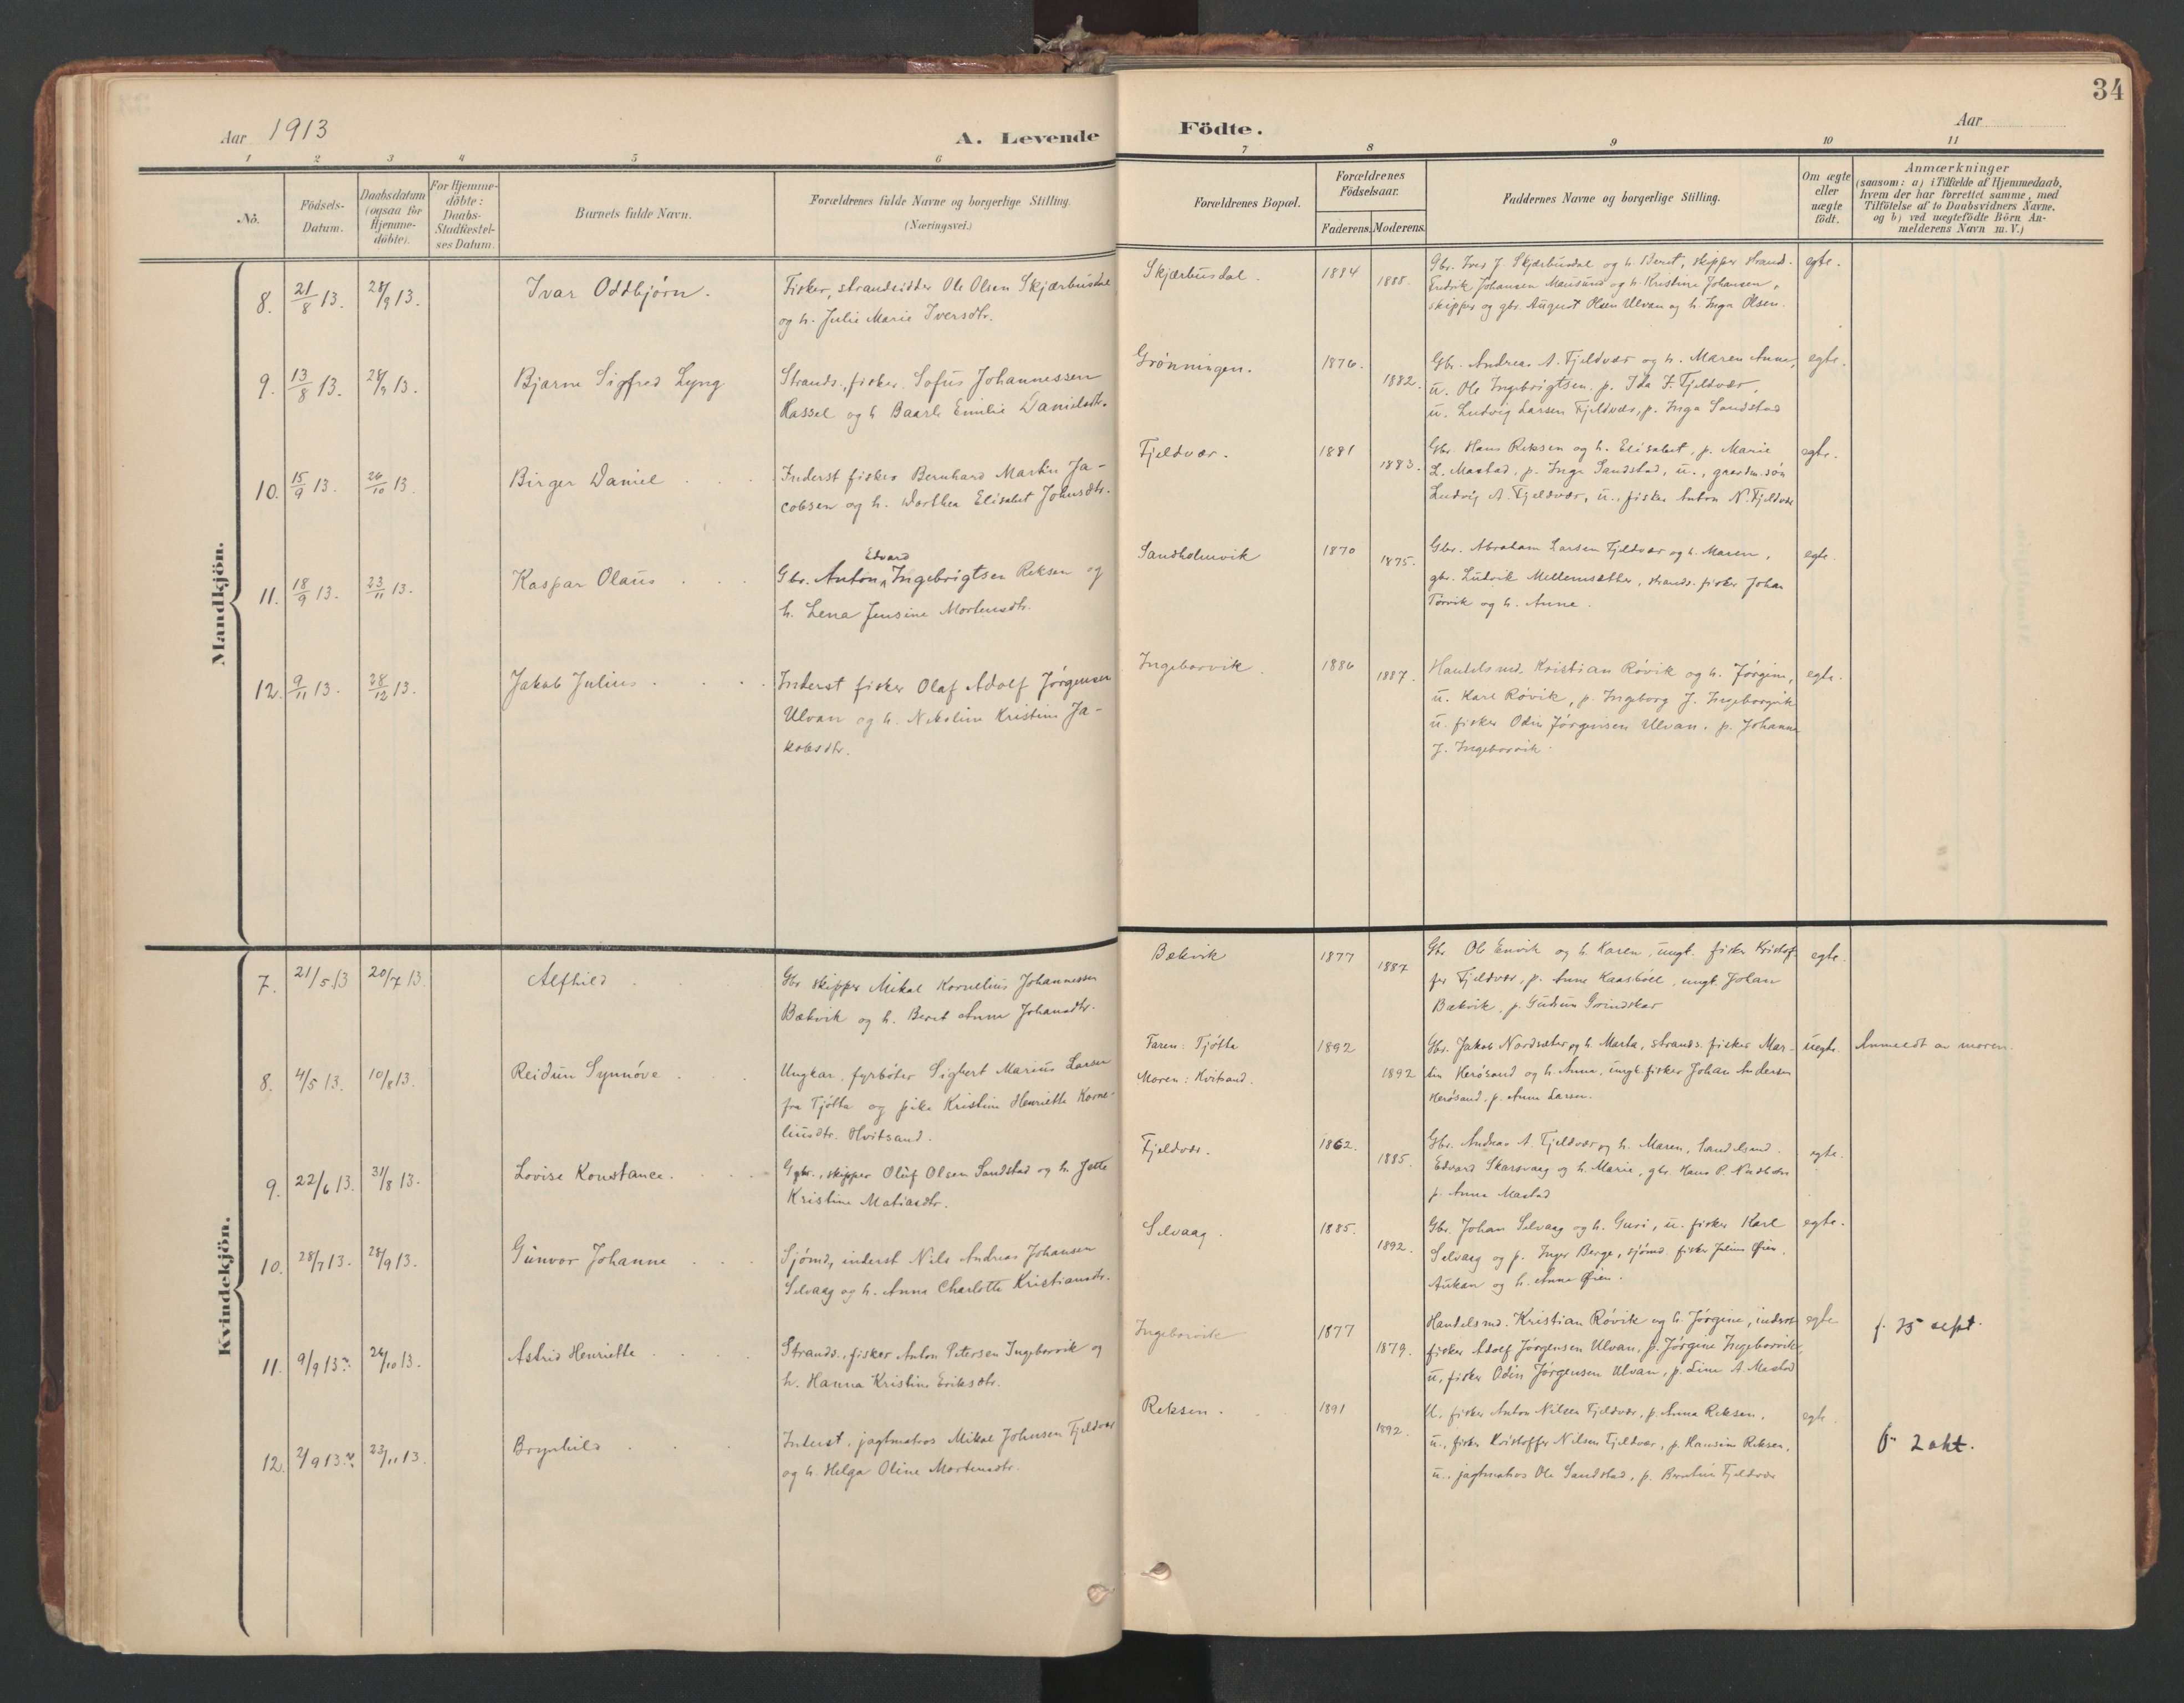 34
Aar 1913
A. Levende Födte.
Aar
1 2 3 4 5 6 7 8 9 10 11
No.
Födsels-Datum.
Daabsdatum (ogsaa for Hjemme-döbte).
For Hjemme-döbte: Daabs-Stadfæstel-ses Datum.
Barnets fulde Navn.
Forældrenes fulde Navne og borgerlige Stilling. (Næringsvei.)
Forældrenes Bopæl.
Forældrenes Födselsaar.
Faderens. Moderens.
Faddernes Navne og borgerlige Stilling.
Om ægte eller uægte født.
Anmærkninger
(saasom: a) i Tilfælde af Hjemmedaab,
hvem der har forrettet samme, med
Tilföielse af to Daabsvidners Navne,
og b) ved uægtefödte Börn An-
melderens Navn m. V.)
Mandkjön.
8. 21/8 13. 28/9 13. Ivar Oddbjörn.
Fisker, strandsidder Ole Olsen Skjærbusdal
og h. Julie Marie Iversdtr.
Skjærbusdal. 1884 1888.
Gbr. Iver J. Skjærbusdal og h. Beret, skipper strand.
Endrik Johansen Mausund og h. Kristine Johansen,
skipper og gbr. August Olsen Ulvan og h. Inga Olsen.
egte.
9. 13/8 13. 28/9 13. Bjarne Sigfred Lyng
Strands., fisker Sofus Johannessen
Hassel og h. Baarle Emilie Danielsdtr.
Grönningen. 1876. 1882.
Gbr. Andreas A. Fjeldvær og h. Maren Anna,
u. Ole Ingebrigtsen. p. Ida F. Fjeldvær,
u. Ludvig Larsen Fjeldvær, p. Inga Sandstad
egte.
10. 15/9 13. 26/10 13. Birger Daniel
Inderst fisker Bernhard Martin Ja-
cobsen og h. Dorthea Elisabet Johnsdtr.
Fjeldvær. 1881 1883.
Gbr. Hans Reksen og h. Elisabet, p. Marie
L. Mastad, p. Inga Sandstad, u., gaardm.søn
Ludvig A. Fjeldvær, u., fisker Anton N. Fjeldvær
egte.
11. 18/9 13. 23/11 13. Kaspar Olaus
Edvard
Gbr. Anton Ingebrigtsen Reksen og
h. Lena Jensine Mortensdtr.
Sandholmvik 1870 1875.
Gbr. Abraham Larsen Fjeldvær og h. Maren,
gbr. Ludvik Mellemsæther, strands. fisker Johan
Tørvik og h. Anne.
egte.
12. 9/11 13. 28/12 13. Jakob Julius
Inderst fisker Olaf Adolf Jörgensen
Ulvan og h. Nikoline Kristine Ja-
kobsdtr.
Ingeborvik. 1886 1887.
Handelsmd. Kristian Rövik og h. Jörgine,
u. Karl Rövik, p. Ingeborg J. Ingeborgvik
u. fisker Odin Jörgensen Ulvan, p. Johanna
J. Ingeborvik.
egte.
Kvindekjön.
7. 21/5 13 20/7 13. Alfhild
Gbr skipper Mikal Kornelius Johannessen
Bækvik og h. Beret Anna Johansdtr.
Bækvik 1877 1887
Gbr Ole Envik og h. Karen, ungk. fisker Kristof-
fer Fjeldvær, p. Anna Kaasböll, ungk. Johan
Bækvik, p. Gudrun Grindskar
egte.
8. 4/5 13. 10/8 13. Reidun Synnöve
Ungkar, fyrböter Sigbert Marius Larsen
fra Tjötta og pike Kristine Henriette Korne-
liusdtr. Hvitsand.
Faren: Tjötta
Moren: Hvitsand.
1892 1892
Gbr. Jakob Nordsæter og h. Marta, strands. fisker Mar-
tin Herösand og h. Anna, ungk. fisker Johan Andersen
Herösand, p. Anna Larsen.
uegte. Anmeldt av moren.
9. 22/6 13. 31/8 13. Lovise Konstance.
Gbr., skipper Oluf Olsen Sandstad og h. Jette
Kristine Matiasdtr.
Fjeldvær. 1862. 1885.
Gbr. Andreas A. Fjeldvær og h. Maren, handelsmd.
Edvard Skarsvaag og h. Marie, gbr. Hans P.
p. Anna Mastad
egte.
10. 28/7 13. 28/9 13. Gunvor Johanne
Sjömd, inderst Nils Andreas Johansen
Selvaag og h. Anna Charlotte Kristiansdtr.
Selvaag. 1885. 1892.
Gbr. Johan Selvaag og h. Guri, u. fisker Karl
Selvaag og p. Inger Berge, sjömd. fisker Julius Øien
Aukan og h. Anna Øien.
egte.
11. 9/9 13. 26/10 13. Astrid Henriette
Strands., fisker Anton Petersen Ingeborvik og
h. Hanna Kristine Eriksdtr.
Ingeborvik 1877 1879.
Handelsmd. Kristian Rövik og h. Jörgine, inderst
fisker Adolf Jörgensen Ulvan, p. Jörgine Ingeborvik,
u. fisker Odin Jörgensen Ulvan, p. Lina A. Mastad
egte f. 25 sept.
12. 2/9 13. 23/11 13. Brynhild
Inderst, jagtmatros Mikal Johnsen Fjeldvær
og h. Helga Oline Mortensdtr.
Reksen. 1891 1892.
U. fisker Anton Nilsen Fjeldvær, p. Anna Reksen,
u., fisker Kristoffer Nilsen Fjeldvær, p. Hansine Reksen,
u., jagtmatros Ole Sandstad, p. Berntine Fjeldvær
egte. f. 2 okt.